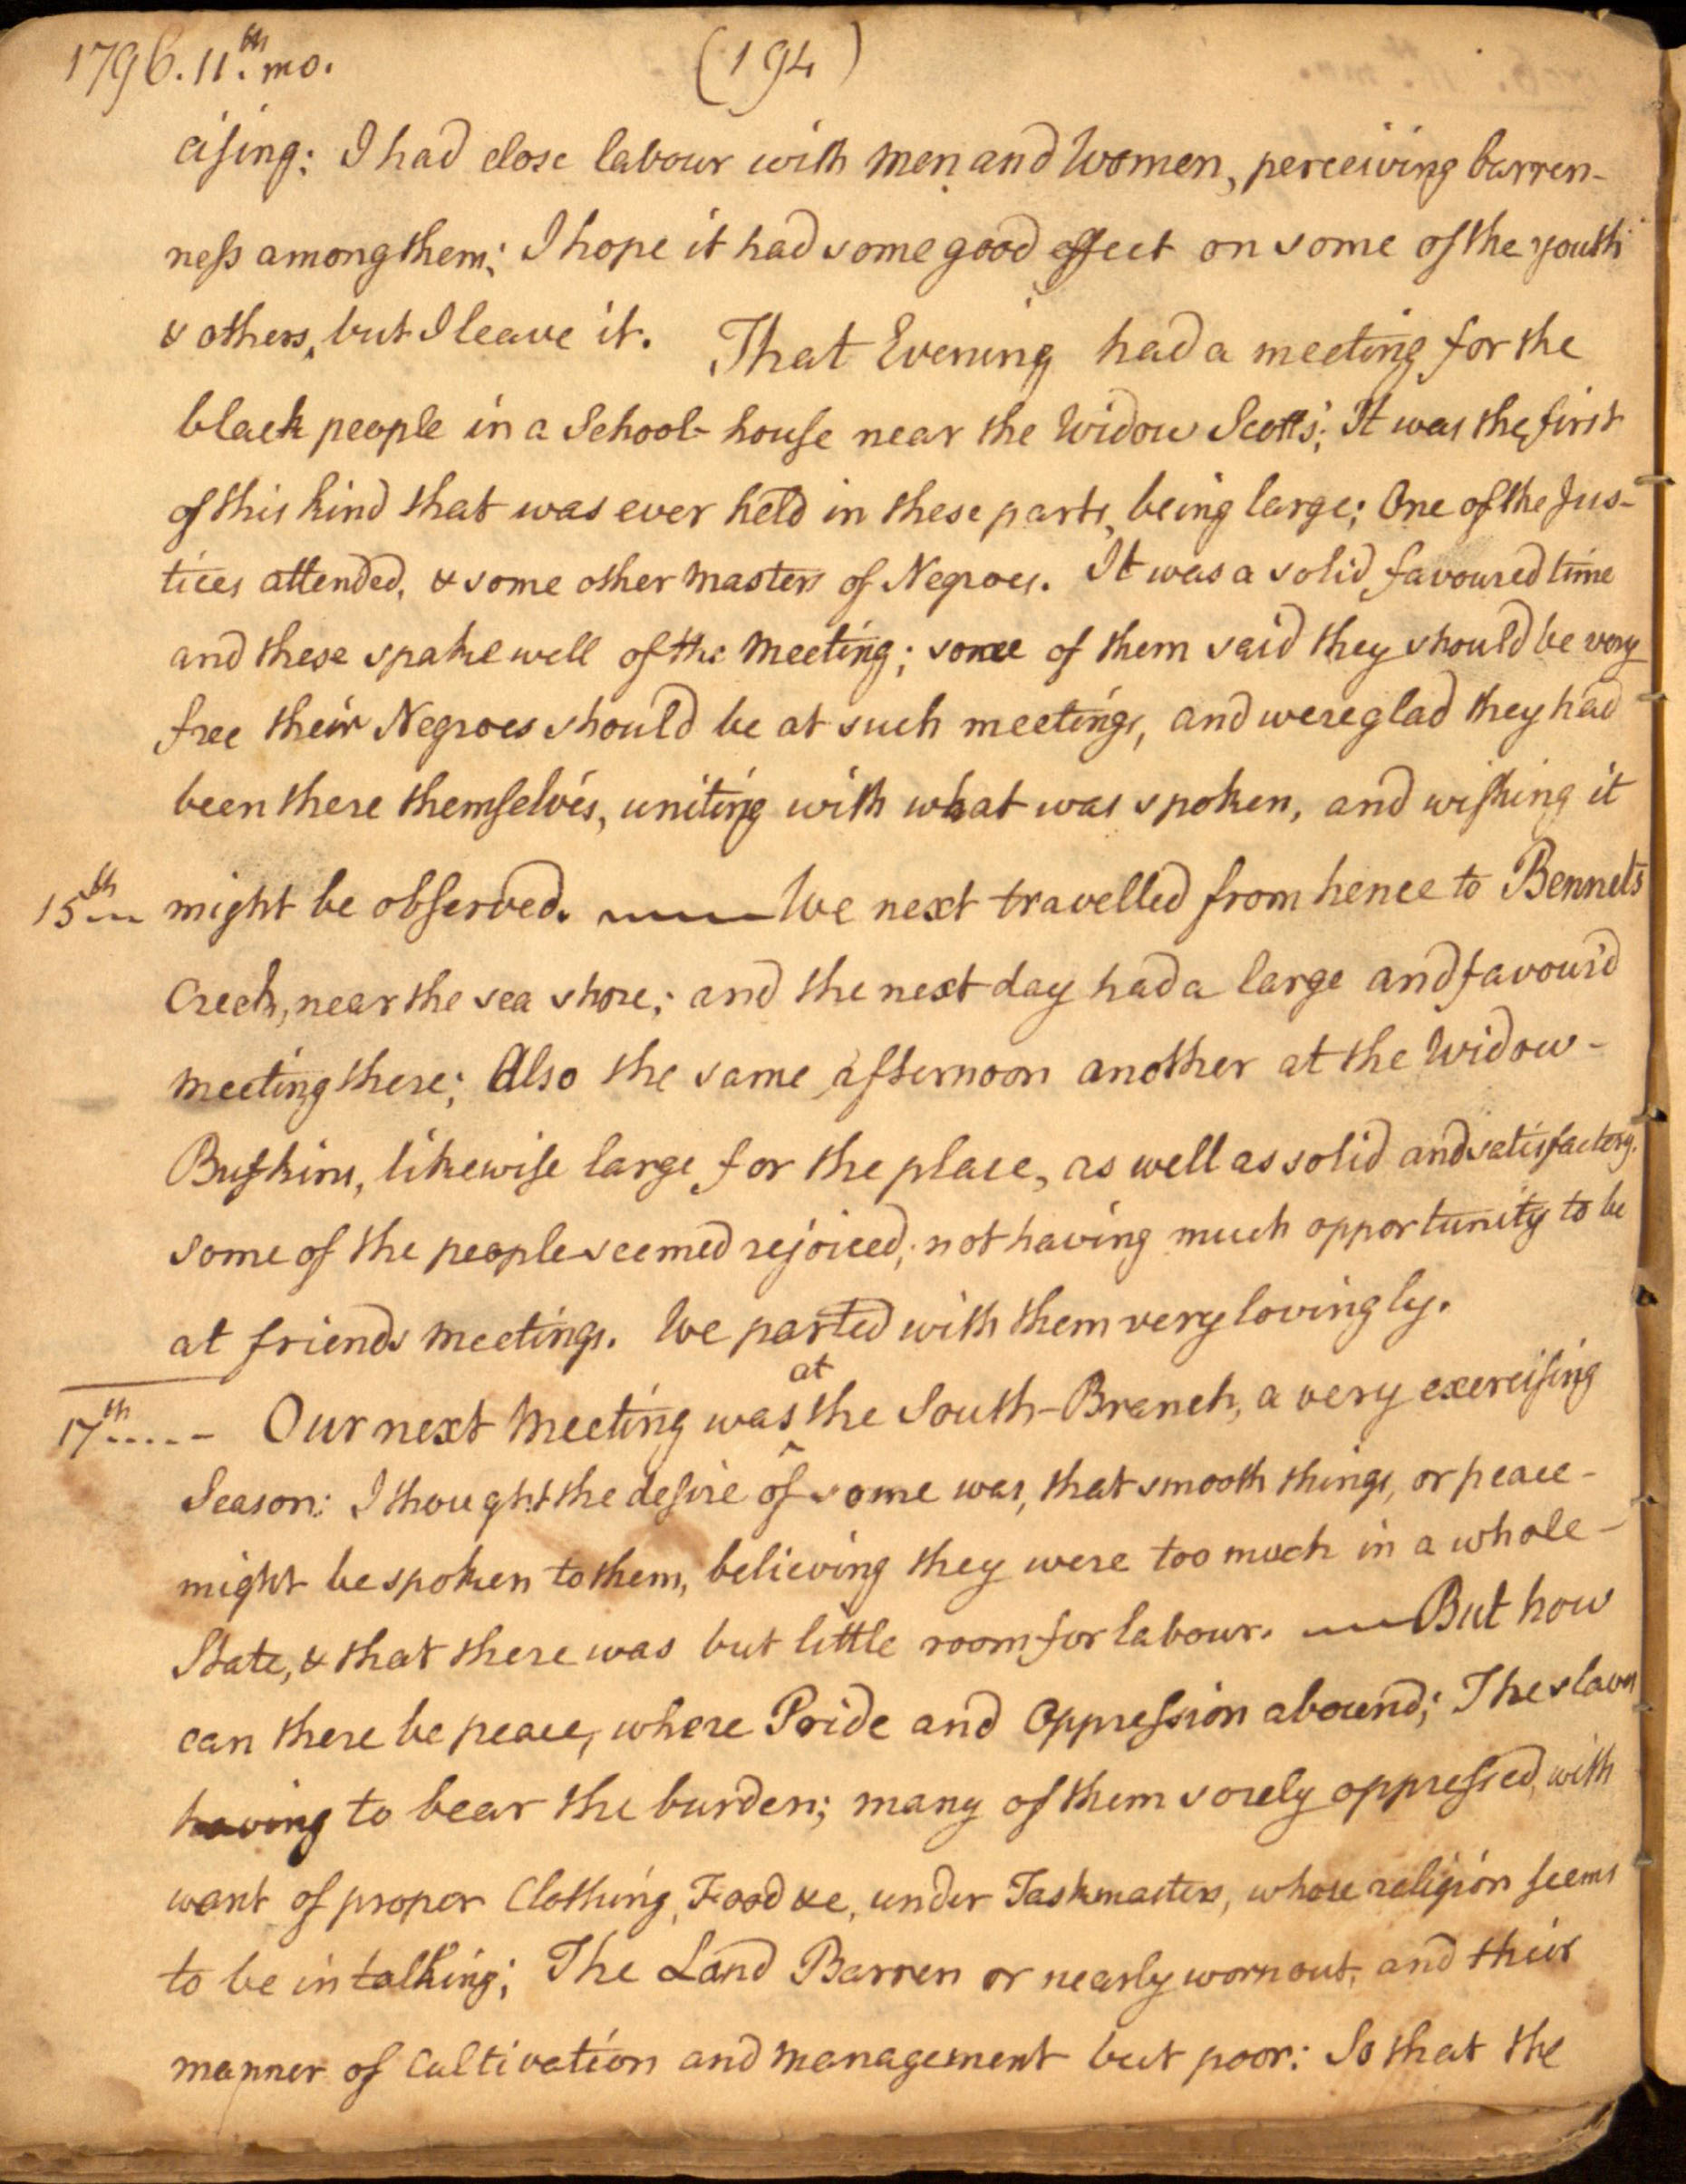 1796. 11.th mo. (194)
cising: I had close labour with men and Women, perceiving barren-
ness among them; I hope it had some good effect on some of the youth
& others, but I leave it. That Evening had a meeting for the
black people in a School-house near the Widow Scott's; It was the first
of this kind that was ever held in these parts, being large; One of the Jus-
tices attended, & some other masters of Negroes. It was a solid favoured time
and these spake well of the Meeting; some of them said they should be very
free their Negroes should be at such meetings, and were glad they had
been there themselves, uniting with what was spoken, and wishing it
15th might be observed. We next travelled from hence to Bennets
Creek, near the sea shore; and the next day had a large and favour'd
meeting there; Also the same afternoon another at the Widow-
Buskins, likewise large for the place, as well as solid and satisfactory.
some of the people seemed rejoiced, not having much opportunity to be
at friends meetings. We parted with them very lovingly.
17th.....- Our next Meeting was at the South-Branch, a very exercising
Season: I thought the desire of some was, that smooth things, or peace-
might be spoken to them, believing they were too much in a whole-
State, & that there was but little room for labour. But how
can there be peace, where Pride and Oppression abound; The slaves
having to bear the burden; many of them sorely oppressed, with
want of proper Clothing, Food &c, under Taskmasters, whose religion seems
to be in talking; The Land Barren or nearly worn out, and their
manner of Cultivation and management but poor: So that the